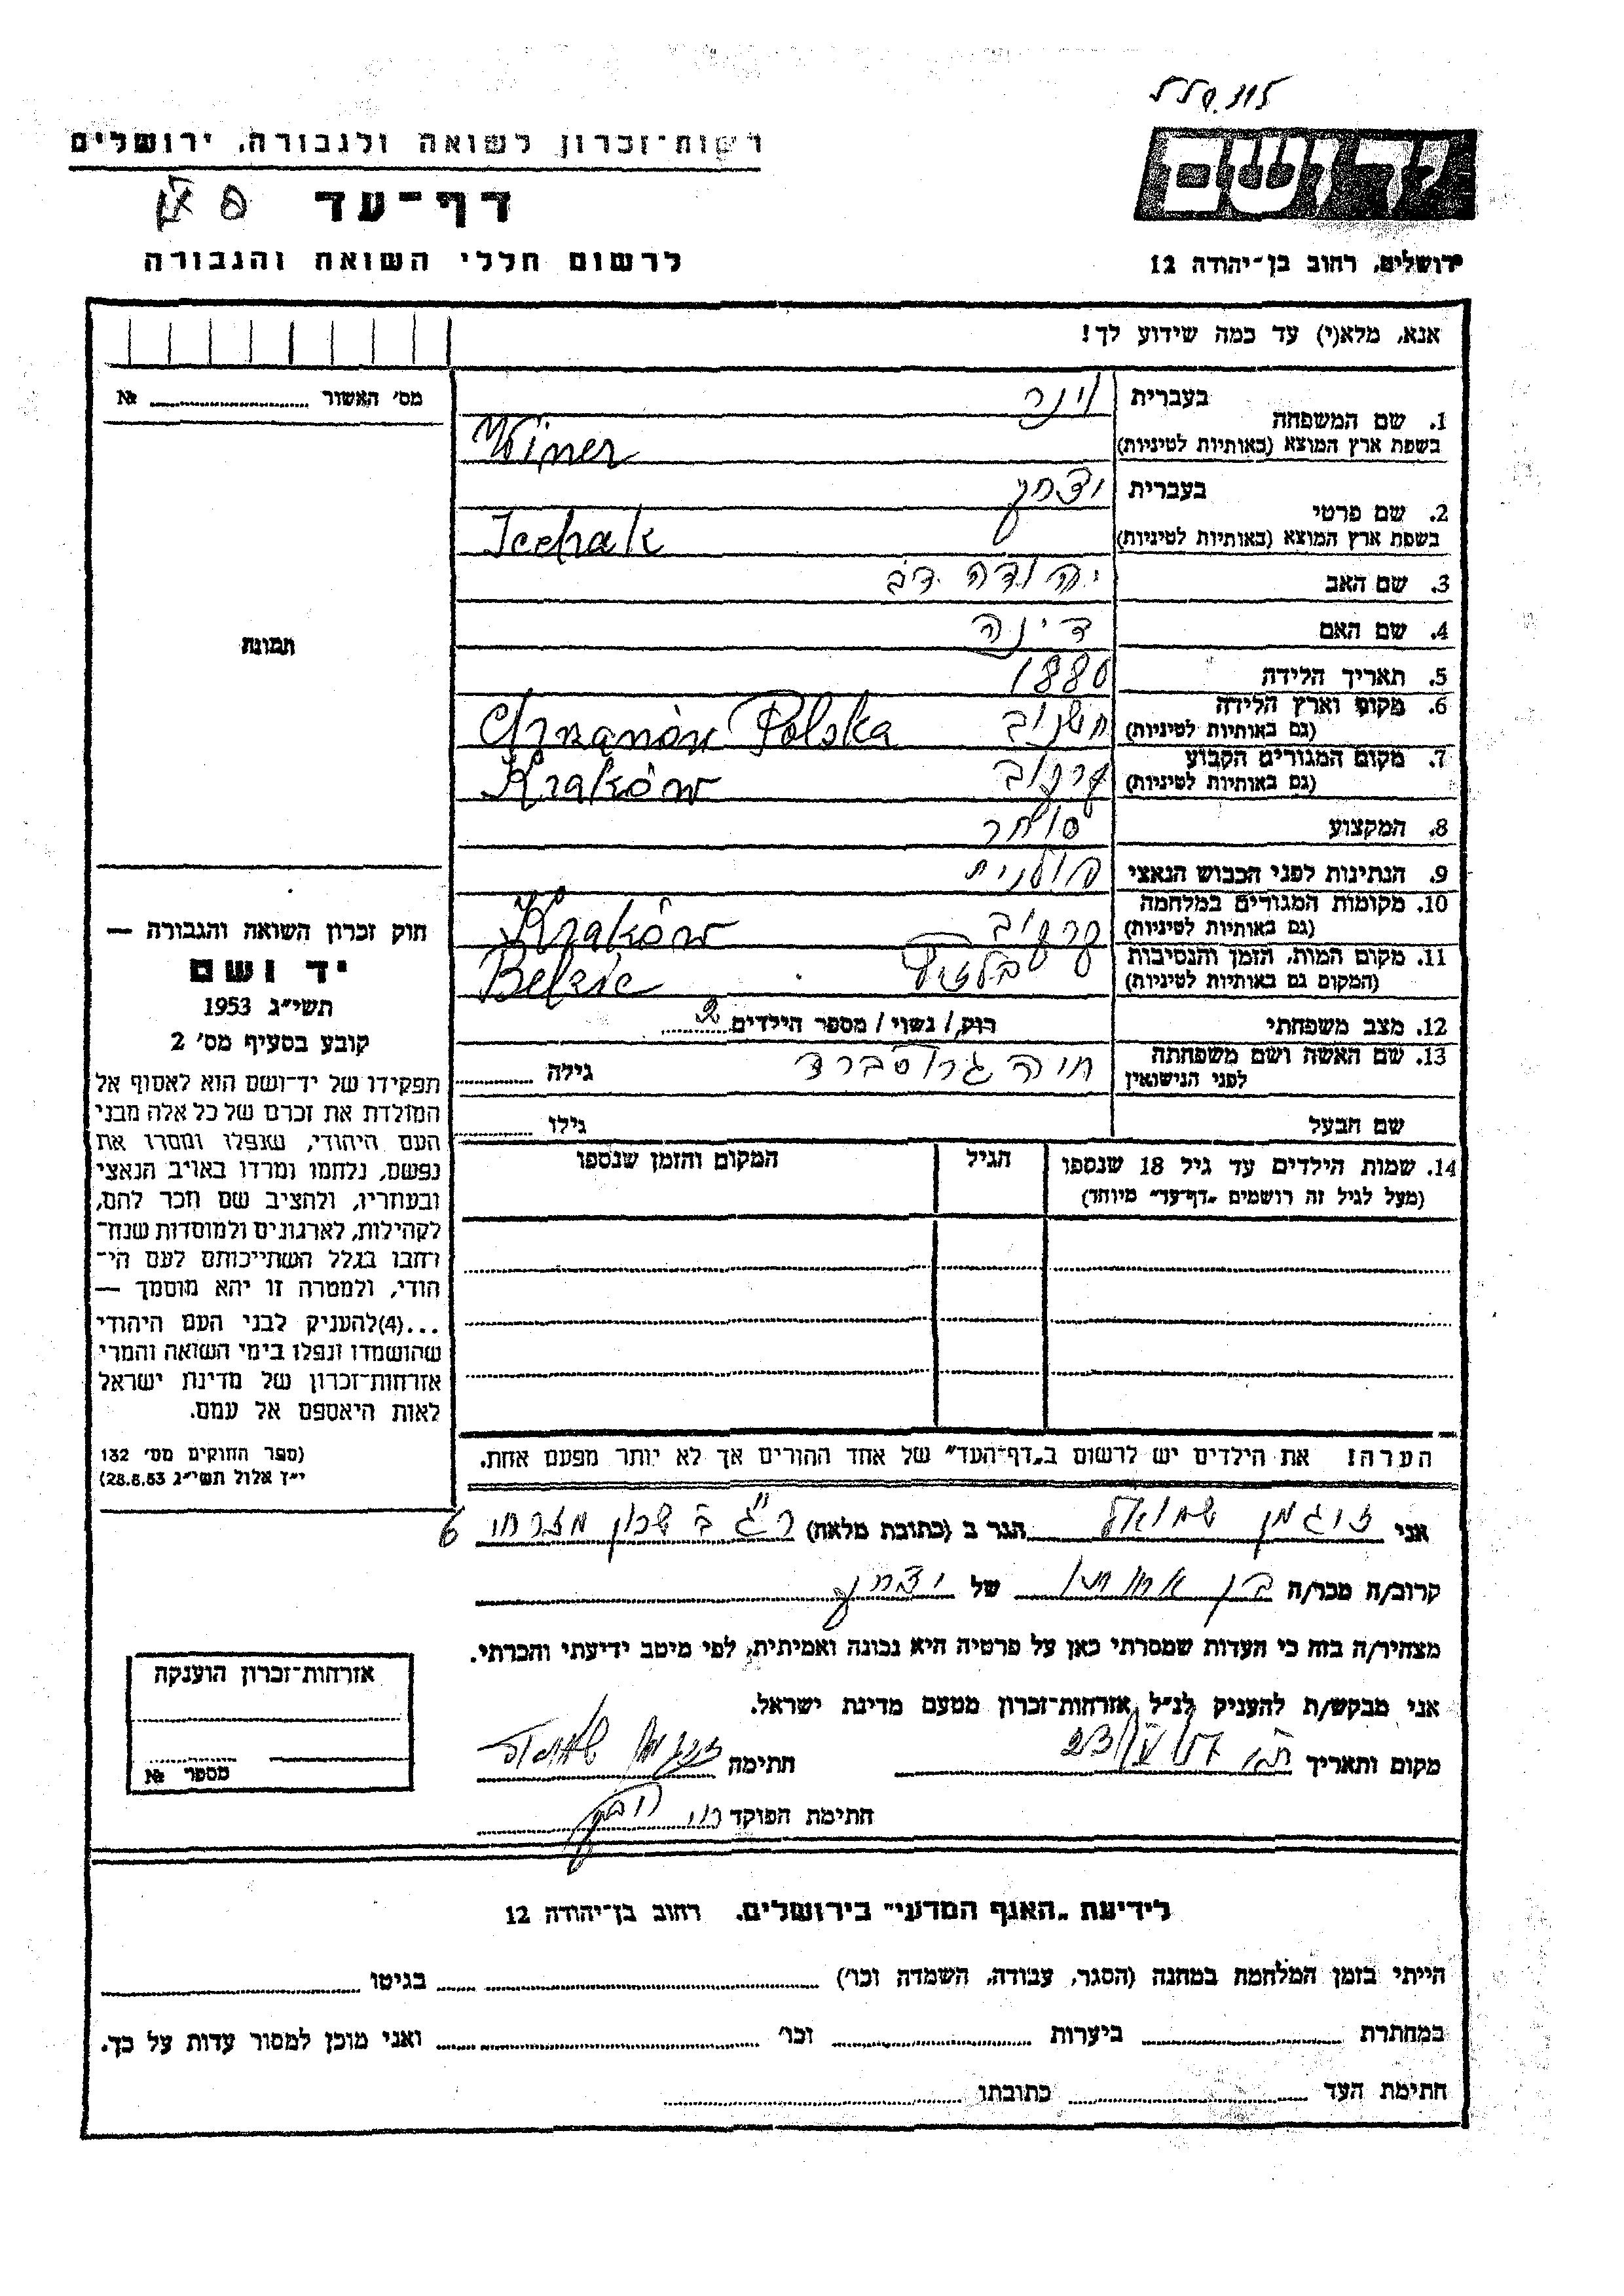 רשות־זכרון לשואה ולגבורה, ירושלים
יד ושם
דף־עד
לרשום חללי השואה והגבורה
ירושלים, רחוב בן־יהודה 12
אנא, מלא(י) עד כמה שידוע לך!
מס׳ האשור № 
תמונה
1. שם המשפחה
בעברית וינר
בשפת ארץ המוצא (באותיות לטיניות) Winer
2. שם פרטי
בעברית יצחק
בשפת ארץ המוצא (באותיות לטיניות) Icchak
3. שם האב יהודה דב
4. שם האם דינה
5. תאריך הלידה 1880
6. מקום וארץ הלידה
(גם באותיות לטיניות) חשנוב Chrzanów Polska
7. מקום המגורים הקבוע
(גם באותיות לטיניות) קרקוב Kraków
8. המקצוע סוחר
9. הנתינות לפני הכבוש הנאצי פולנית
10. מקומות המגורים במלחמה
(גם באותיות לטיניות) קרקוב Kraków
11. מקום המות, הזמן והנסיבות
(המקום גם באותיות לטיניות) Belzic
12. מצב משפחתי רווק/ נשוי/ מספר הילדים 2
13. שם האשה ושם משפחתה
לפני הנישואין חיה גרוסברד גילה
שם הבעל גילו
14. שמות הילדים עד גיל 18 שנספו הגיל המקום והזמן שנספו
(מעל לגיל זה רושמים „דף־עד״ מיוחד)
הערה! את הילדים יש לרשום ב„דף־העד״ של אחד ההורים אך לא יותר מפעם אחת.
חוק זכרון השואה והגבורה —
יד ושם
תשי״ג 1953
קובע בסעיף מס׳ 2
תפקידו של יד־ושם הוא לאסוף אל
המולדת את זכרם של כל אלה מבני
העם היהודי, שנפלו ומסרו את
נפשם, נלחמו ומרדו באויב הנאצי
ובעוזריו, ולהציב שם וזכר להם,
לקהילות, לארגונים ולמוסדות שנח־
רבו בגלל השתייכותם לעם הי־
הודי, ולמטרה זו יהא מוסמך —
...(4)להעניק לבני העם היהודי
שהושמדו ונפלו בימי השואה והמרי
אזרחות־זכרון של מדינת ישראל
לאות היאספם אל עמם.
(ספר החוקים מס׳ 132
י״ז אלול תשי״ג 28.8.53)
אני זיגמן שמואל הגר ב (כתובת מלאה) ר״ג מזרחי 6
קרוב/ה מכר/ה בן אחותו של יצחק
מצהיר/ה בזה כי העדות שמסרתי כאן על פרטיה היא נכונה ואמיתית, לפי מיטב ידיעתי והכרתי.
אני מבקש/ת להעניק לנ״ל אזרחות־זכרון מטעם מדינת ישראל.
מקום ותאריך חתימה זיגמן שמואל
חתימת הפוקד
אזרחות־זכרון הוענקה
מספר №
לידיעת „האגף המדעי״ בירושלים, רחוב בן־יהודה 12
הייתי בזמן המלחמה במחנה (הסגר, עבודה, השמדה וכו׳) בגיטו
במחתרת ביערות וכו׳ ואני מוכן למסור עדות על כך.
חתימת העד כתובתו